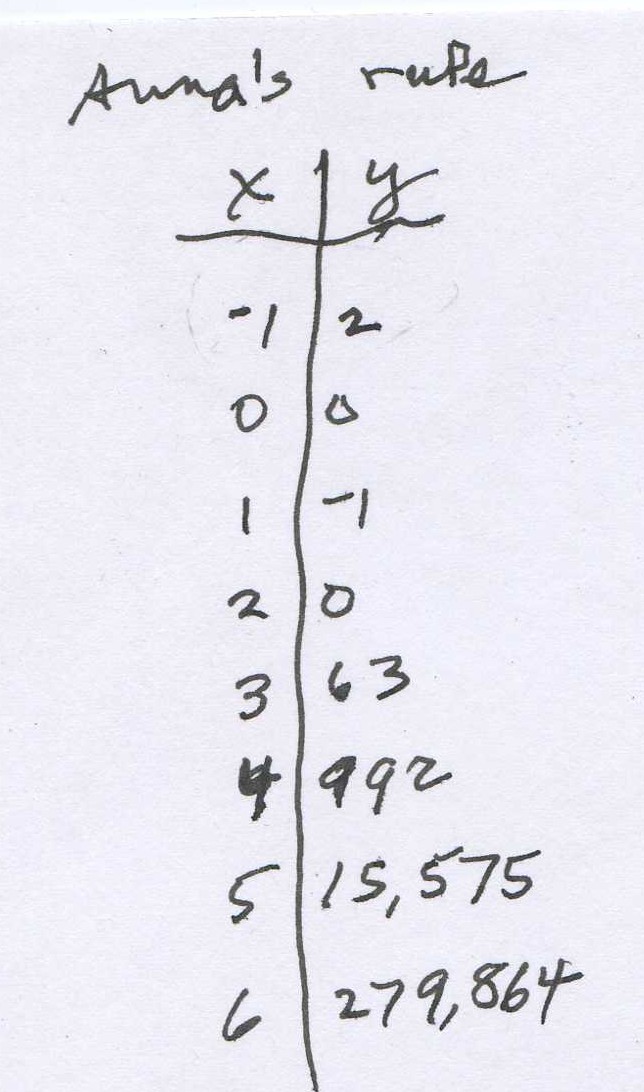 Anna's rule
x y
-1 2
0 0
1 -1
2 0
3 63
4 992
5 15,575
6 279,864